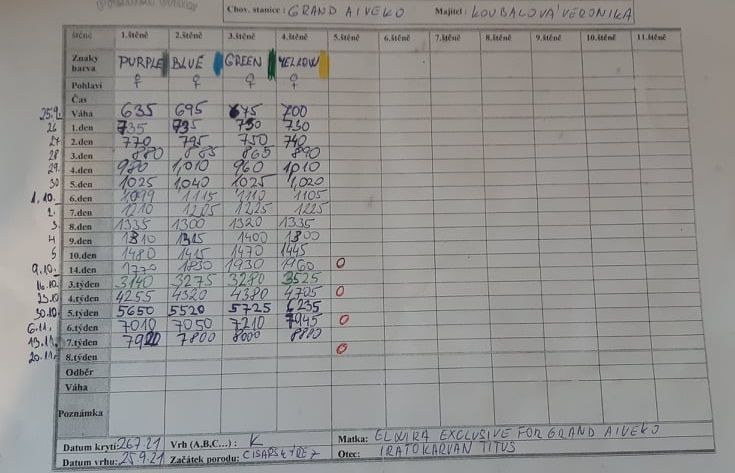 Chov. stanice : GRAND AIVEKO Majitel: KOUBALOVÁ VERONIKA
štěně 1.štěně 2.štěně 3.štěně 4.štěně 5.štěně 6.štěně 7.štěně 8.štěně 9.štěně 10.štěně 11.štěně
Znaky barva PURPLE BLUE GREEN YELLOW
Pohlaví ♀ ♀ ♀ ♀
Čas
25.9. Váha 635 695 675 700
26 1.den 735 795 750 730
27 2.den 770 795 750 740
28 3.den 880 885 865 890
29. 4.den 980 1,010 960 1,010
30 5.den 1025 1,040 1025 1,020
1.10. 6.den 1099 1115 1110 1105
2. 7.den 1210 1205 1225 1225
3. 8.den 1335 1300 1320 1335
4 9.den 1310 1315 1400 1300
5 10.den 1480 1415 1470 1445
9.10. 14.den 1770 1830 1930 1960 O
16.10. 3.týden 3140 3275 3280 3525
23.10 4.týden 4255 4320 4380 4705 O
30.10 5.týden 5650 5520 5725 6235
6.11. 6.týden 7010 7050 7210 7945 O
13.11. 7.týden 7920 7800 8000 8800
20.11. 8.týden O
Odběr
Váha
Poznámka
Datum krytí: 26.7.21 Vrh (A,B,C...) : K Matka: ELWIRA EXCLUSIVE FOR GRAND AIVEKO
Datum vrhu: 25.9.21 Začátek porodu: Otec: IRATOKARVAN TITUS